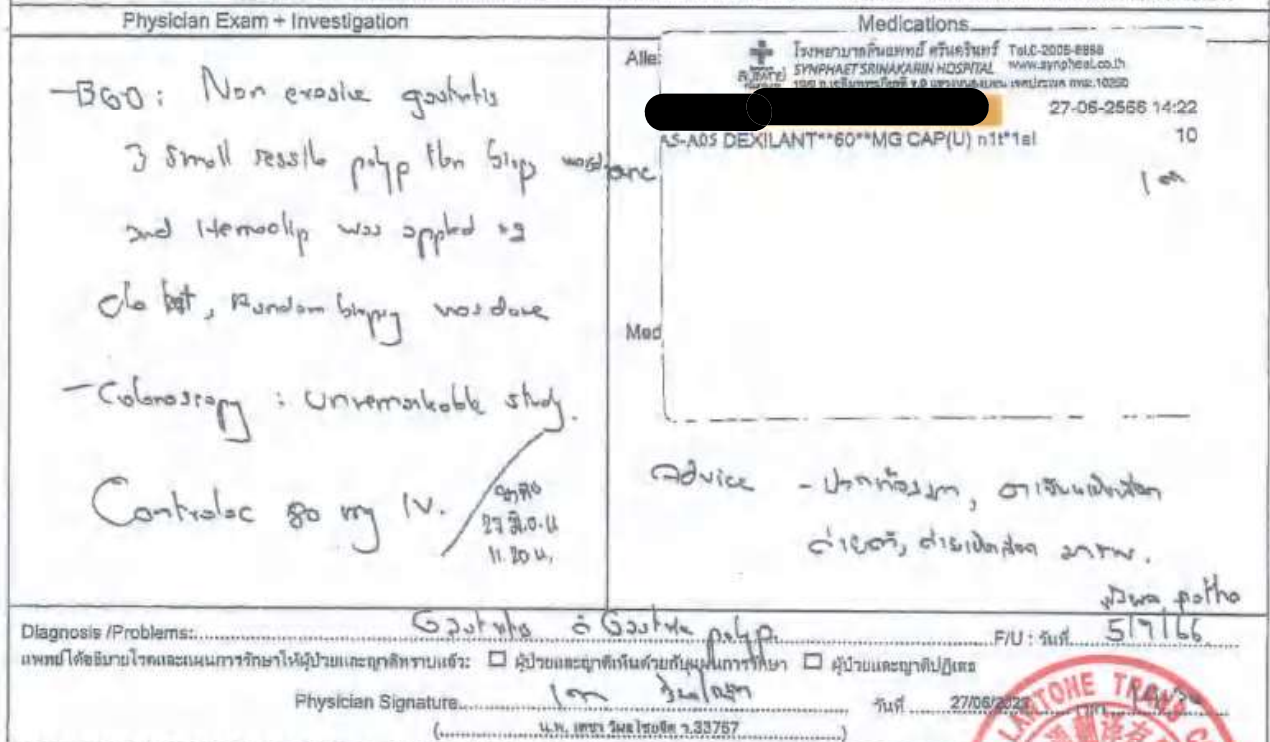 Physician Exam + Investigation
- EGD: Non erosive gastritis
3 small sessile polyp then biopsy was done
and Hemoclip was applied x2
clo test, Random biopsy was done
- Colonoscopy : Unremarkable study.
Controloc 80 mg IV.
11.20 น.
Medications
Alle
โรงพยาบาลสินแพทย์ ศรีนครินทร์ Tel.0-2006-8888
SYNPHAET SRINAKARIN HOSPITAL www.synphaet.co.th
27-06-2566 14:22
AS-A05 DEXILANT**60**MG CAP(U) n1t*1el 10
Med
Advice - ปวดท้องมาก, อาเจียนเป็นเลือด
ถ่ายดำ, ถ่ายเป็นเลือด มา รพ.
patho
Diagnosis /Problems: Gastritis c Gastric polyp. F/U : วันที่ 5/7/66
แพทย์ได้อธิบายโรคและแผนการรักษาให้ผู้ป่วยและญาติทราบแล้ว: ☐ ผู้ป่วยและญาติเห็นด้วยกับแผนการรักษา ☐ ผู้ป่วยและญาติปฏิเสธ
Physician Signature วันที่ 27/06/2023
(น.พ. เดชา ว.33757)